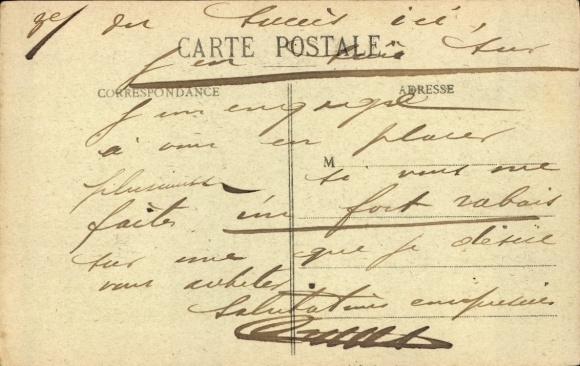 du succès ici,
CARTE POSTALE
j'en suis sur
CORRESPONDANCE
ADRESSE
J'm engage
à vous en placer
M
plusieurs si vous me
faites un fort rabais
sur une que je désire
vous acheter
Salutations empressées